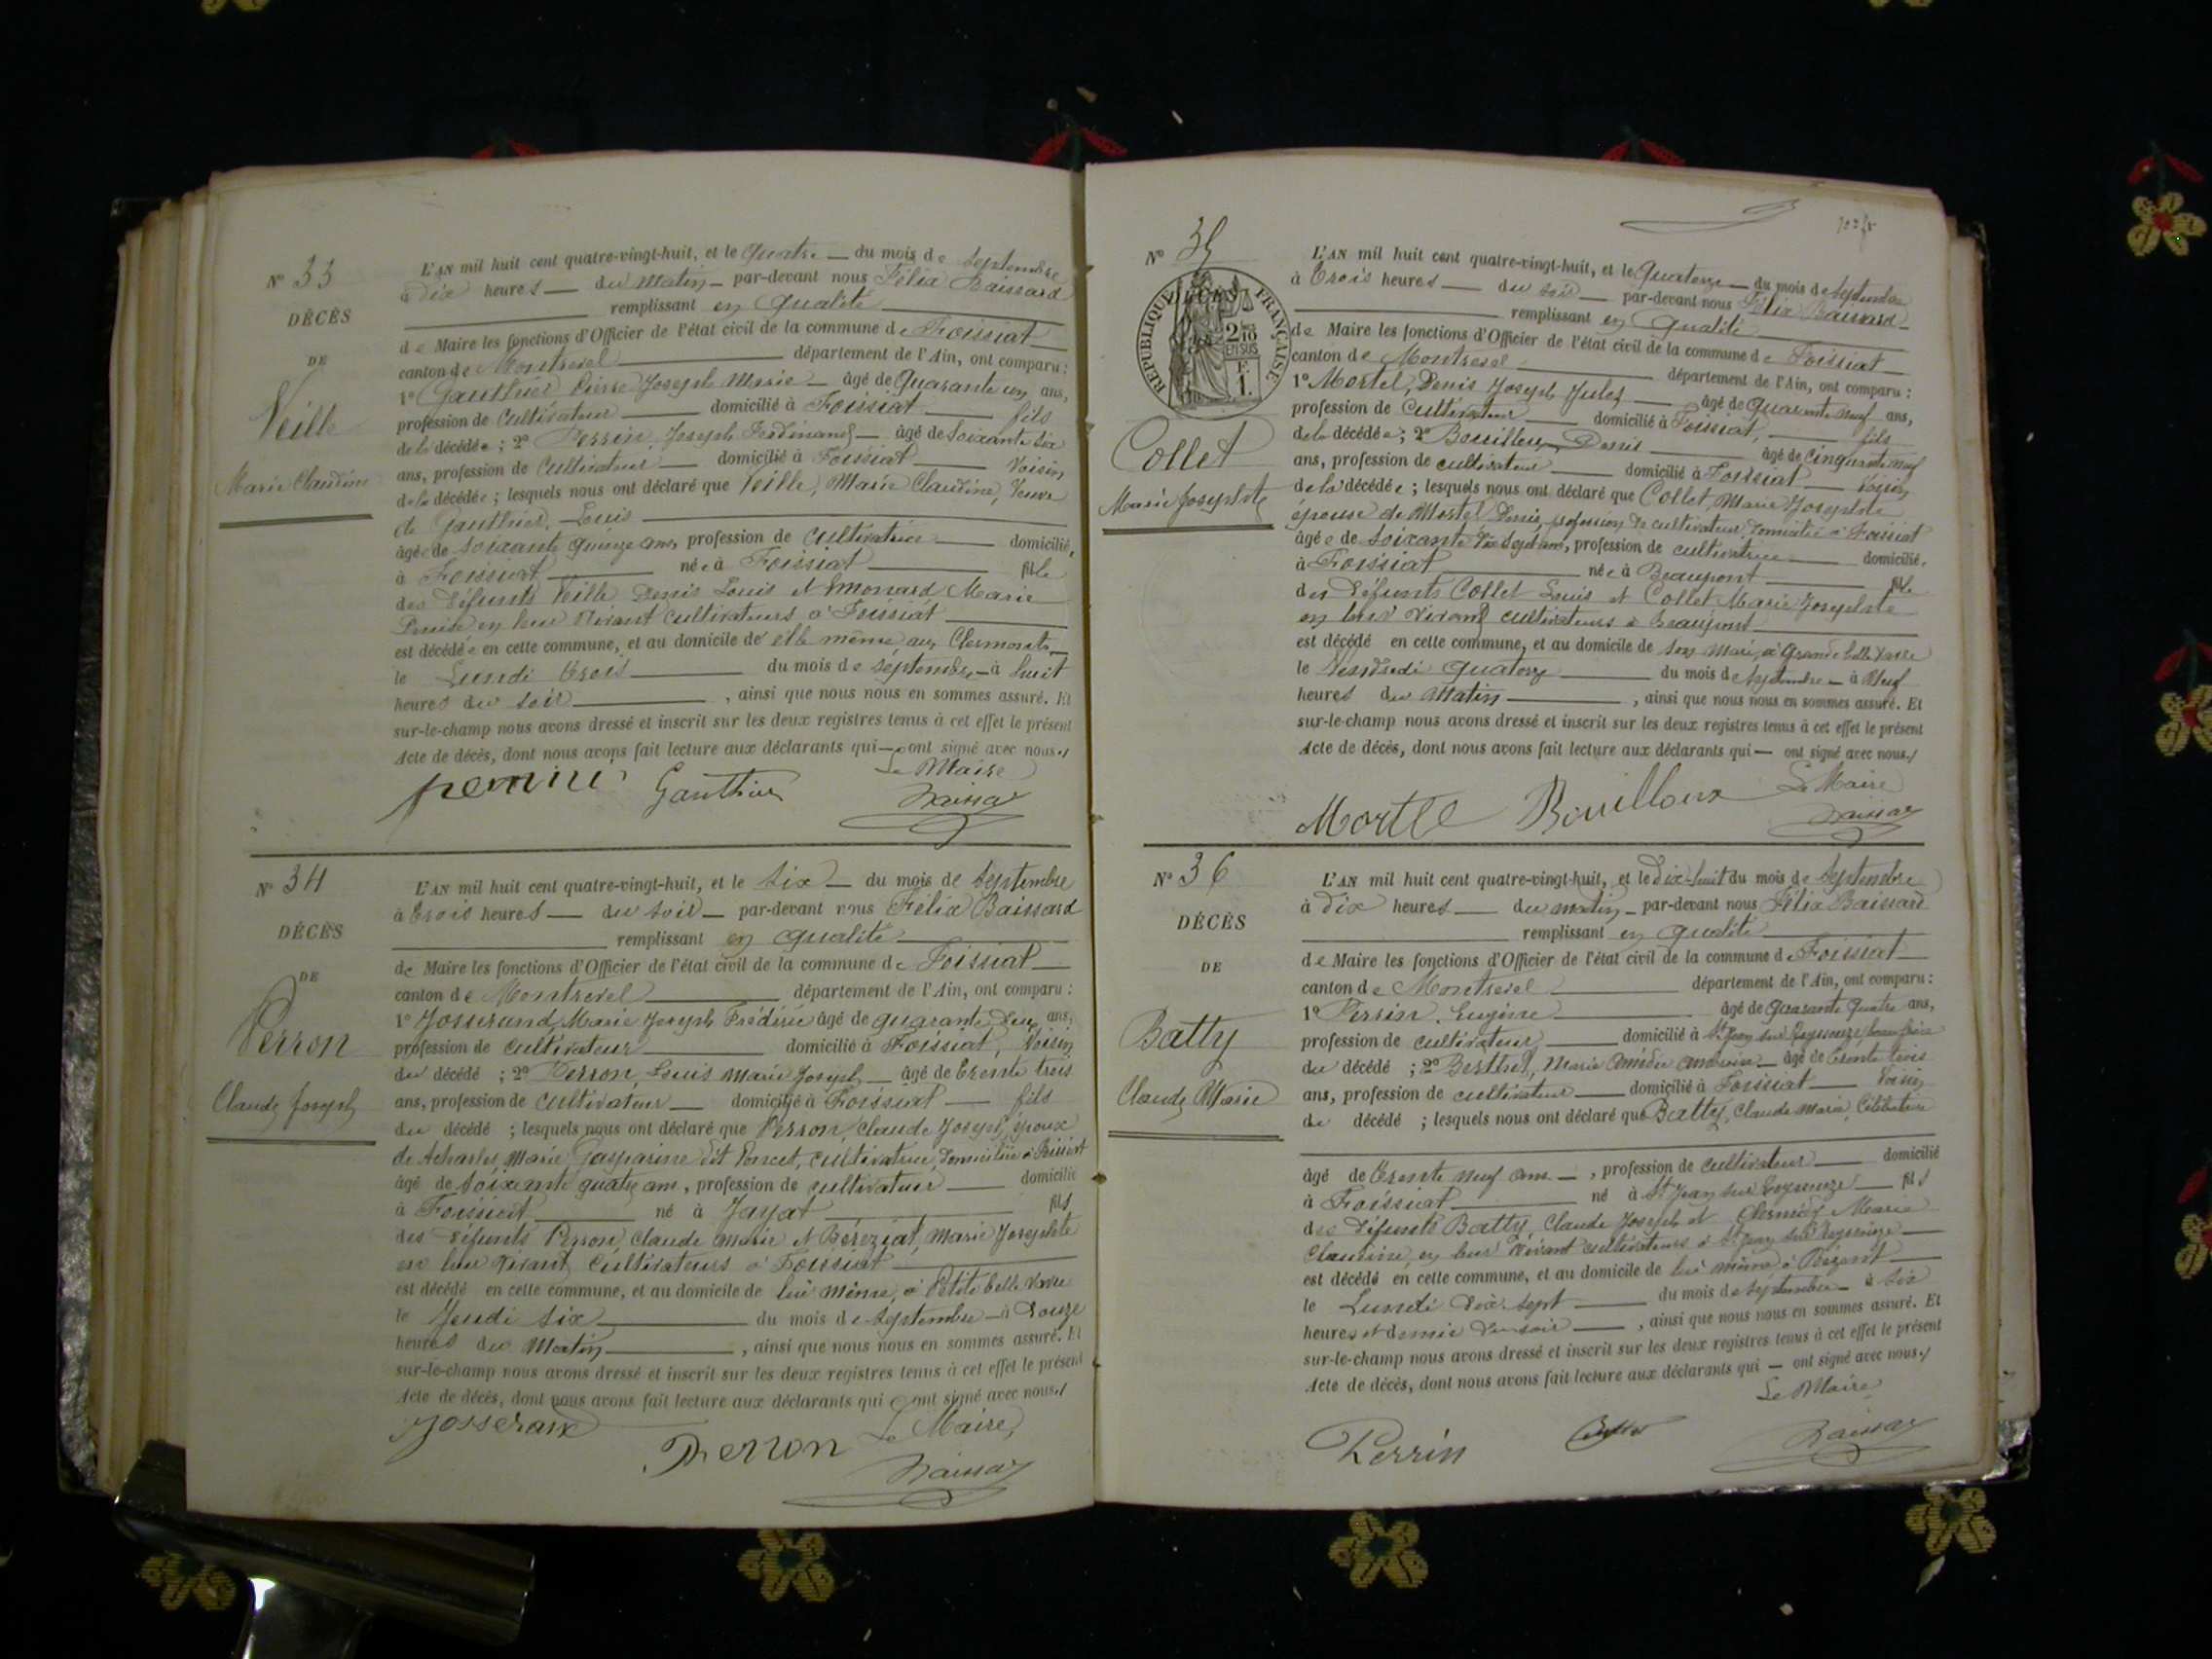 N° 33
DÉCÈS
DE
Veille
Marie Claudine
L'AN mil huit cent quatre-vingt-huit, et le quatre — du mois de septembre
à dix heures — du matin — par-devant nous Félix Baissard
remplissant en qualité
de Maire les fonctions d'Officier de l'état civil de la commune de Foissiat
canton de Montrevel département de l'Ain, ont comparu :
1° Gauthier Pierre Joseph Marie — âgé de Quarante un ans,
profession de Cultivateur domicilié à Foissiat fils
de la décédée ; 2° Perrin Joseph Ferdinand — âgé de soixante six
ans, profession de Cultivateur domicilié à Foissiat Voisin
de la décédée ; lesquels nous ont déclaré que Veille, Marie Claudine, Veuve
de Gauthier, Louis
âgée de soixante quinze ans, profession de cultivatrice domicilié,
à Foissiat née à Foissiat fille
des défunts Veille Denis Louis et Emonard Marie
Denise en leur vivant cultivateurs à Foissiat
est décédée en cette commune, et au domicile de elle même aux Clermonts
le Lundi trois du mois de septembre — à huit
heures du soir , ainsi que nous nous en sommes assuré. Et
sur-le-champ nous avons dressé et inscrit sur les deux registres tenus à cet effet le présent
Acte de décès, dont nous avons fait lecture aux déclarants qui — ont signé avec nous./
Le Maire
Gauthier
N° 34
DÉCÈS
DE
Perron
Claude Joseph
L'AN mil huit cent quatre-vingt-huit, et le six — du mois de septembre
à trois heures — du soir — par-devant nous Félix Baissard
remplissant en qualité
de Maire les fonctions d'Officier de l'état civil de la commune de Foissiat
canton de Montrevel département de l'Ain, ont comparu :
1° Josserand Marie Joseph Frédéric âgé de quarante deux ans,
profession de cultivateur domicilié à Foissiat, Voisin
du décédé ; 2° Perron, Louis Marie Joseph — âgé de trente trois
ans, profession de cultivateur — domicilié à Foissiat — fils
du décédé ; lesquels nous ont déclaré que Perron, Claude Joseph, époux
de Marie Gasparine dit Poncet, cultivatrice, domiciliée à Foissiat
âgé de soixante quatre ans, profession de cultivateur domicilié
à Foissiat né à Jayat fils
des défunts Perron, Claude Marie et Béréziat, Marie Josephte
en leur vivant cultivateurs à Foissiat
est décédé en cette commune, et au domicile de lui même, à Petite belle vavre
le Jeudi six du mois de septembre — à douze
heures du matin , ainsi que nous nous en sommes assuré. Et
sur-le-champ nous avons dressé et inscrit sur les deux registres tenus à cet effet le présent
Acte de décès, dont nous avons fait lecture aux déclarants qui ont signé avec nous./
Josserand
Perron
Le Maire,
N° 35
RÉPUBLIQUE FRANÇAISE
DÉCÈS
2/10
EN SUS
F.
1.
Collet
Marie Josephte
L'AN mil huit cent quatre-vingt-huit, et le Quatorze — du mois de septembre
à trois heures — du soir — par-devant nous Félix Baissard
remplissant en qualité
de Maire les fonctions d'Officier de l'état civil de la commune de Foissiat
canton de Montrevel département de l'Ain, ont comparu :
1° Mortel, Denis Joseph Jules — âgé de quarante neuf ans,
profession de cultivateur domicilié à Foissiat, fils
de la décédée ; 2° Bouilloux, Denis âgé de cinquante neuf
ans, profession de cultivateur domicilié à Foissiat — Voisin
de la décédée ; lesquels nous ont déclaré que Collet, Marie Josephte
épouse de Mortel Denis, profession de cultivateur, domicilié à Foissiat
âgée de soixante dix sept ans, profession de cultivatrice domicilié,
à Foissiat née à Beaupont fille
des défunts Collet Louis et Collet Marie Josephte
en leur vivant cultivateurs à Beaupont
est décédé en cette commune, et au domicile de son mari, à Grande belle vavre
le Vendredi quatorze du mois de septembre — à neuf
heures du matin , ainsi que nous nous en sommes assuré. Et
sur-le-champ nous avons dressé et inscrit sur les deux registres tenus à cet effet le présent
Acte de décès, dont nous avons fait lecture aux déclarants qui — ont signé avec nous./
Le Maire
Bouilloux
N° 36
DÉCÈS
DE
Batty
Claude Marie
L'AN mil huit cent quatre-vingt-huit, et le dix-huit du mois de septembre
à dix heures — du matin — par-devant nous Félix Baissard
remplissant en qualité
de Maire les fonctions d'Officier de l'état civil de la commune de Foissiat
canton de Montrevel département de l'Ain, ont comparu :
1° Perrin, Eugène âgé de quarante quatre ans,
profession de cultivateur domicilié à St Jean sur Reyssouze, beau frère
du décédé ; 2° Berthet, Marie Amédée — âgé de trente trois
ans, profession de cultivateur — domicilié à Foissiat — Voisin
du décédé ; lesquels nous ont déclaré que Batty, Claude Marie, Célibataire
âgé de trente neuf ans — , profession de cultivateur domicilié
à Foissiat né à St Jean sur Reyssouze — fils
des défunts Batty, Claude Joseph et Marie
Claudine, en leur vivant cultivateurs à St Jean sur Reyssouze
est décédé en cette commune, et au domicile de lui même à
le Lundi dix sept du mois de septembre — à six
heures et demie du soir , ainsi que nous nous en sommes assuré. Et
sur-le-champ nous avons dressé et inscrit sur les deux registres tenus à cet effet le présent
Acte de décès, dont nous avons fait lecture aux déclarants qui — ont signé avec nous./
Le Maire
Perrin